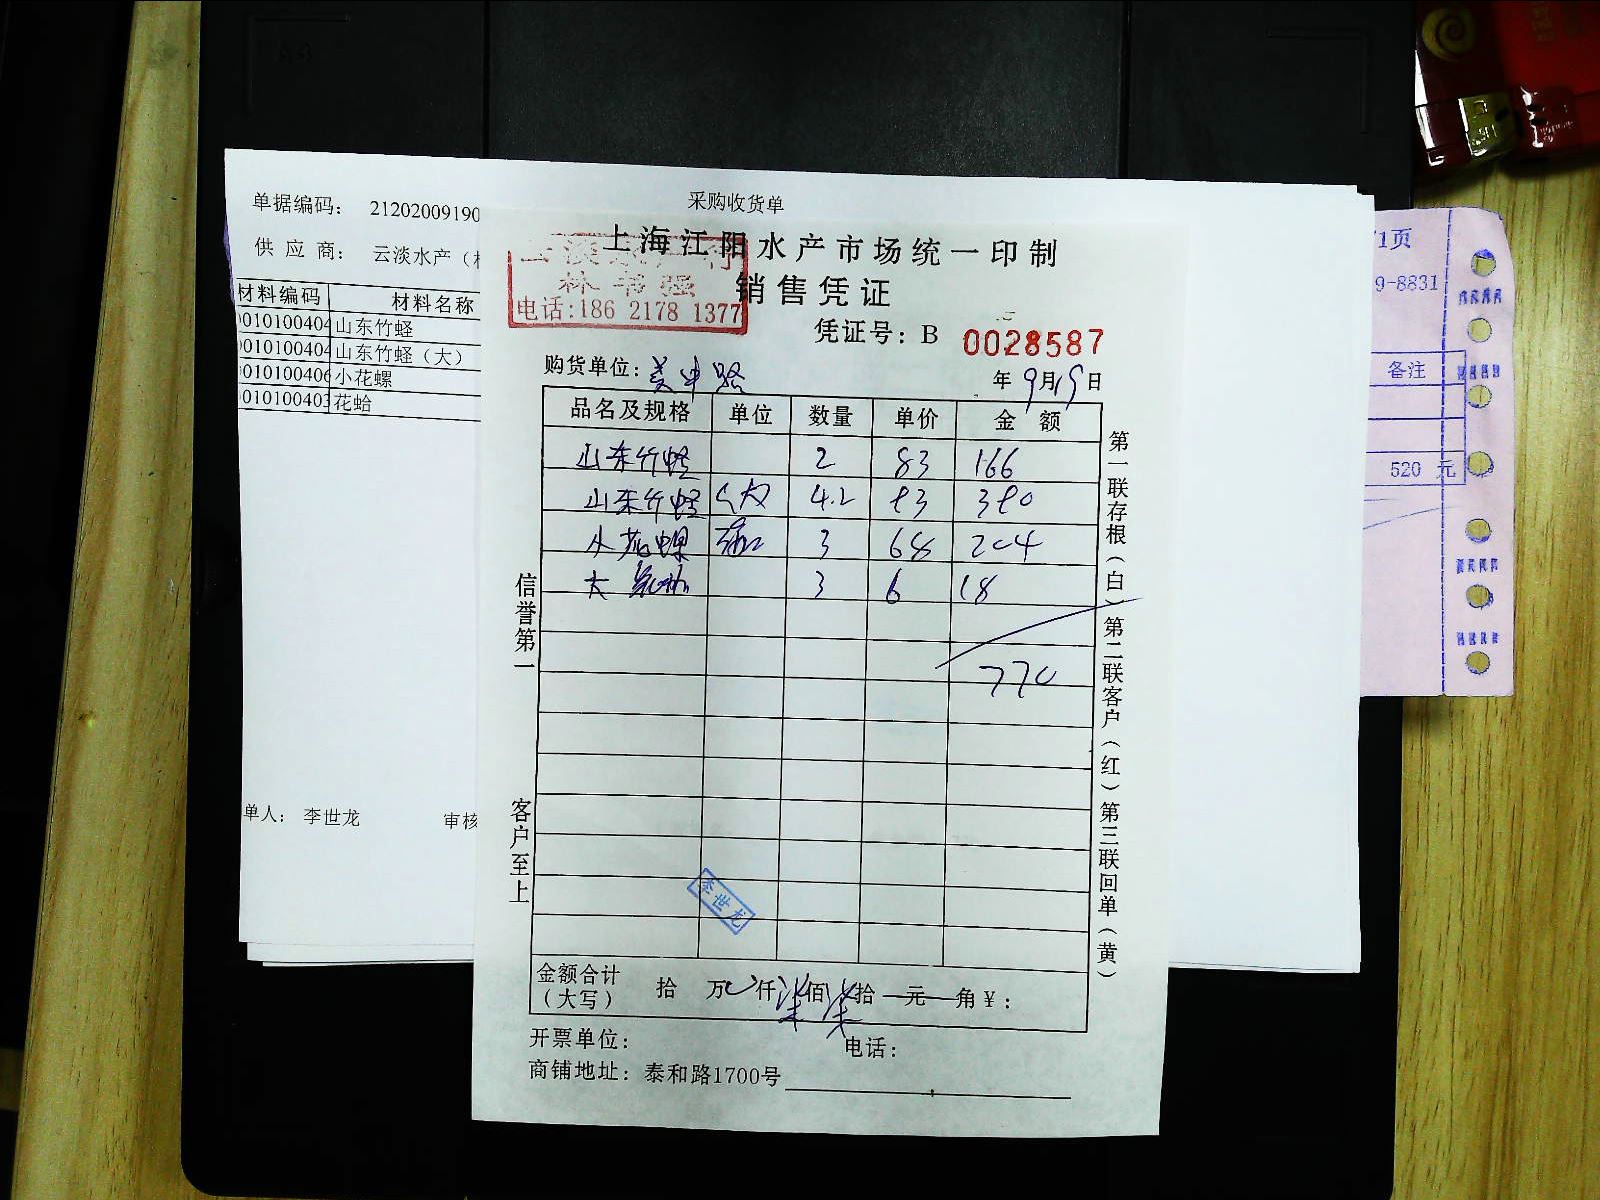 采购收货单
单据编码： 21202009190
供 应 商： 云淡水产（林
材料编码 材料名称
0010100404 山东竹蛏
0010100404 山东竹蛏（大）
0010100406 小花螺
0010100403 花蛤
单人： 李世龙 审核
上海江阳水产市场统一印制
林书强
电话:186 2178 1377
销售凭证
凭证号：B 0028587
购货单位： 年9月19日
品名及规格 单位 数量 单价 金 额
山东竹蛏 2 83 166
山东竹蛏 (大) 4.2 93 390
小花螺 3 68 204
大 3 6 18
770
信誉第一
客户至上
第一联存根(白) 第二联客户(红) 第三联回单(黄)
李世龙
金额合计（大写） 拾 万 仟 柒 佰 柒 拾 元 角 ¥：
开票单位： 电话：
商铺地址： 泰和路1700号
/1页
9-8831
备注
520 元